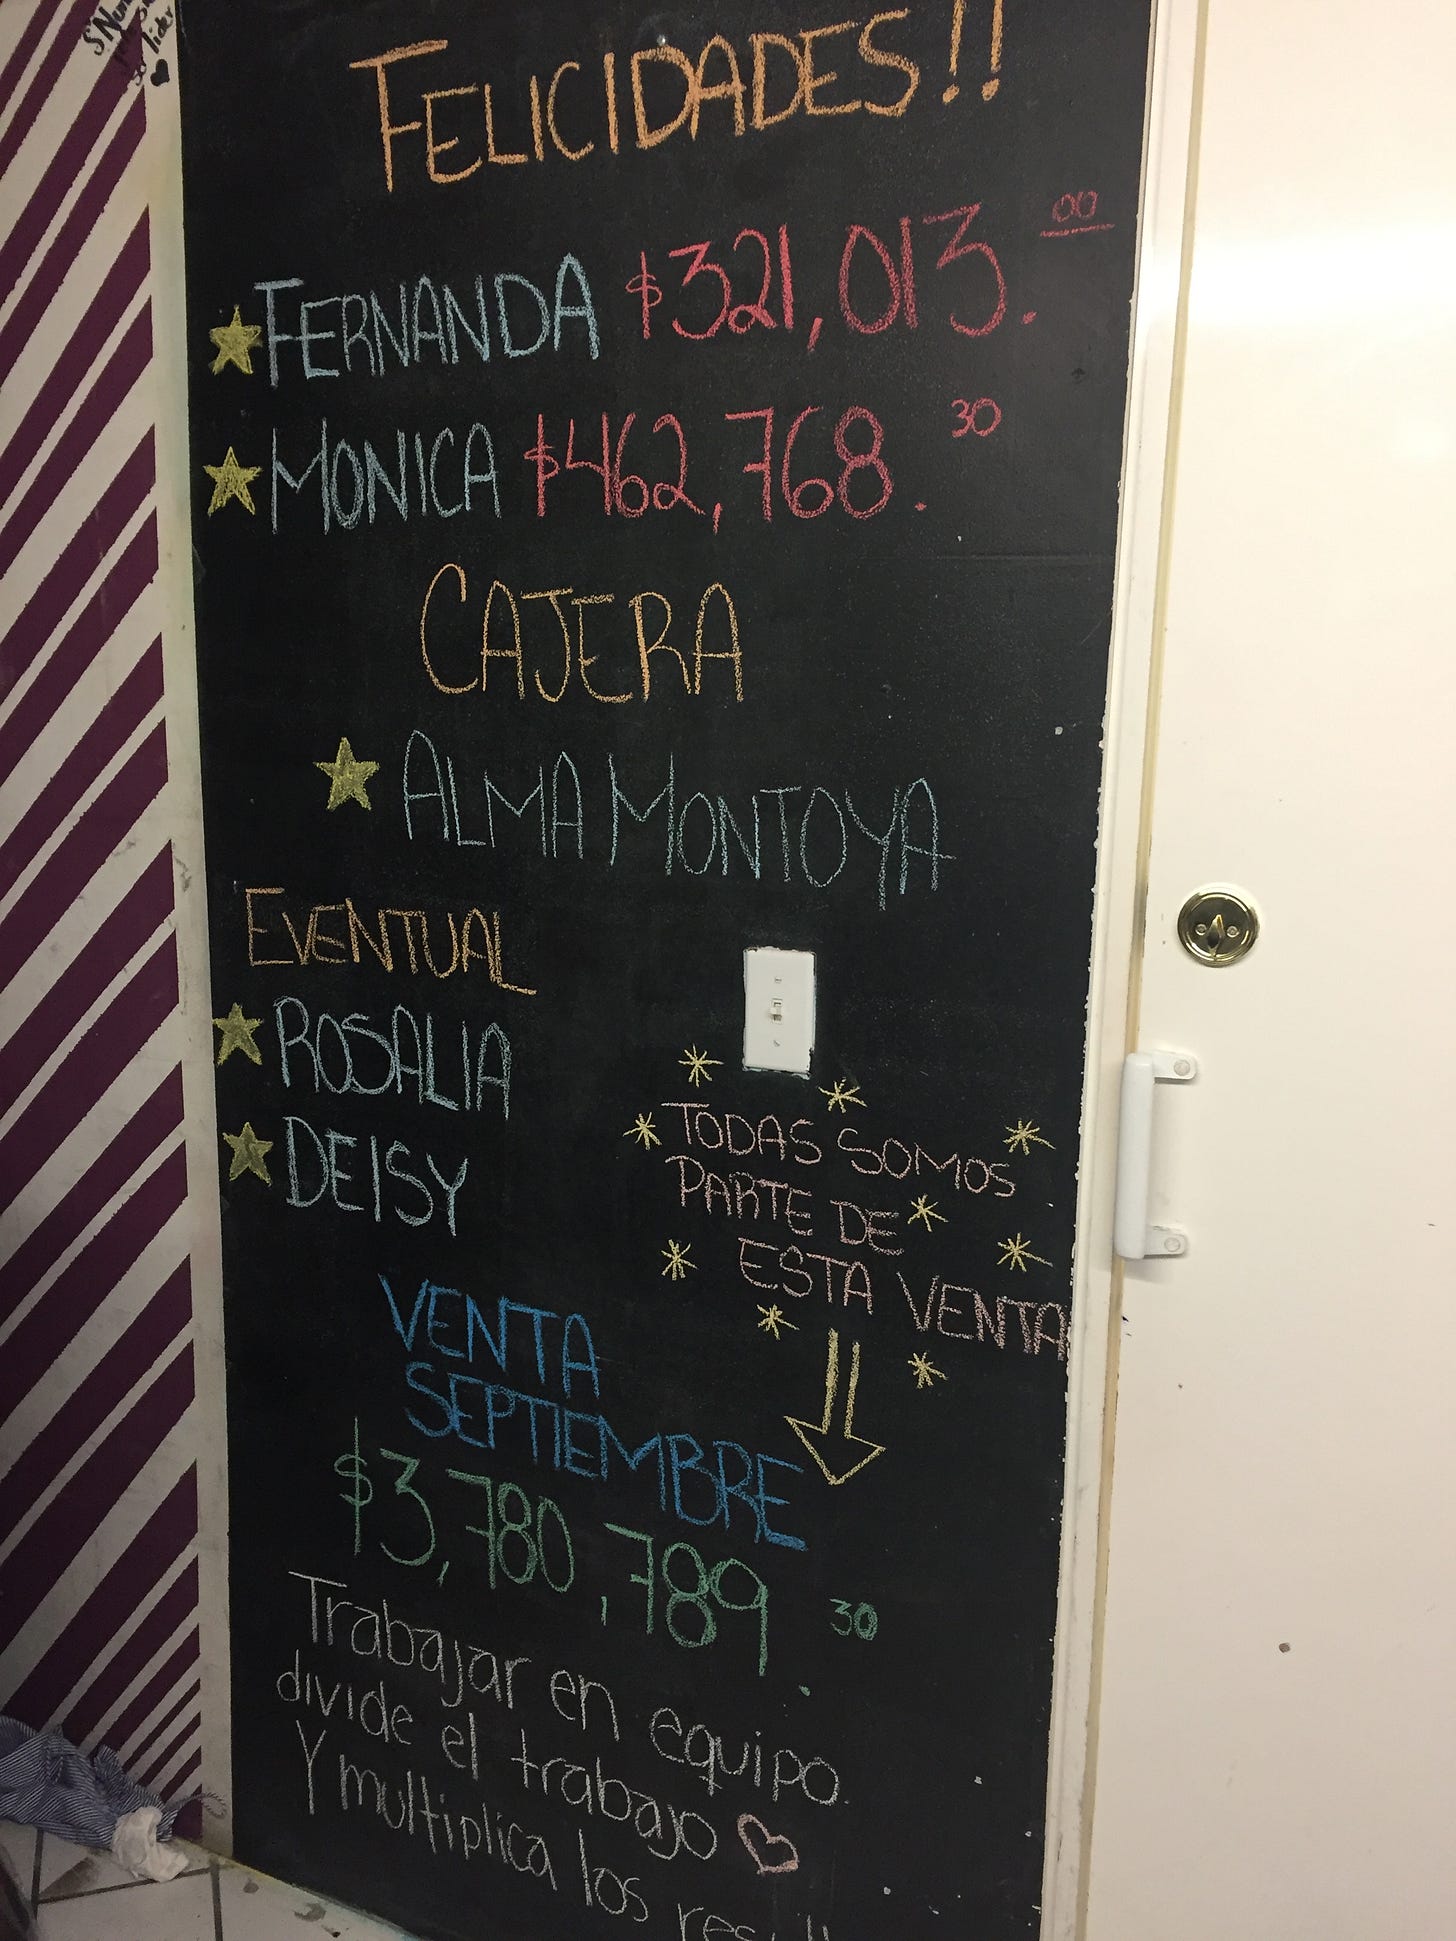 FELICIDADES!!
FERNANDA $321,013.00
MONICA $462,768.30
CAJERA
ALMA MONTOYA
EVENTUAL
ROSALIA
DEISY
TODAS SOMOS
PARTE DE
ESTA VENTA
VENTA
SEPTIEMBRE
$3,780,789.30
Trabajar en equipo
divide el trabajo
Y multiplica los
lider